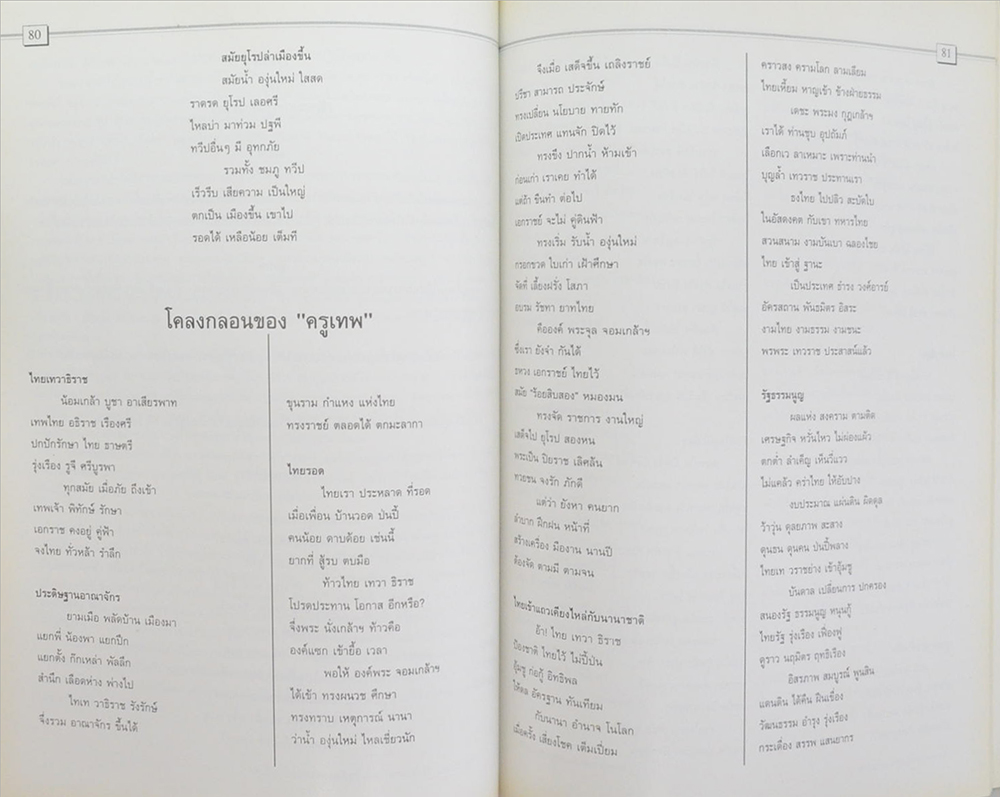 80
สมัยยุโรปล่าเมืองขึ้น
สมัยน้ำ องุ่นใหม่ ใสสด
ราดรด ยุโรป เลอศรี
ไหลบ่า มาท่วม ปฐพี
ทวีปอื่นๆ มี อุทกภัย
รวมทั้ง ชมภู ทวีป
เร็วรีบ เสียความ เป็นใหญ่
ตกเป็น เมืองขึ้น เขาไป
รอดได้ เหลือน้อย เต็มที
โคลงกลอนของ "ครูเทพ"
ไทยเทวาธิราช
น้อมเกล้า บูชา อาเสียรพาท
เทพไทย อธิราช เรืองศรี
ปกปักรักษา ไทย ธาษตรี
รุ่งเรือง รูจี ศรีบูรพา
ทุกสมัย เมื่อภัย ถึงเข้า
เทพเจ้า พิทักษ์ รักษา
เอกราช คงอยู่ คู่ฟ้า
จงไทย ทั่วหล้า รำลึก
ประดิษฐานอาณาจักร
ยามเมื่อ พลัดบ้าน เมืองมา
แยกพี่ น้องพา แยกปีก
แยกตั้ง กึกเหล่า พัลลึก
สำนึก เลือดห่าง พ่างไป
ไทเท วาธิราช รังรักษ์
จึ่งรวม อาณาจักร ขึ้นได้
ขุนราม กำแหง แห่งไทย
ทรงราชย์ ตลอดใต้ ตกมะลากา
ไทยรอด
ไทยเรา ประหลาด ที่รอด
เมื่อเพื่อน บ้านวอด ป่นปี้
คนน้อย ดาบด้อย เช่นนี้
ยากที่ สู้รบ ตบมือ
ท้าวไทย เทวา ธิราช
โปรดประทาน โอกาส อีกหรือ?
จึ่งพระ นั่งเกล้าฯ ท้าวคือ
องค์แซก เข้ายื้อ เวลา
พอให้ องค์พระ จอมเกล้าฯ
ได้เข้า ทรงผนวช ศึกษา
ทรงทราบ เหตุการณ์ นานา
ว่าน้ำ องุ่นใหม่ ไหลเชี่ยวนัก
81
จึงเมื่อ เสด็จขึ้น เถลิงราชย์
ปรีชา สามารถ ประจักษ์
ทรงเปลี่ยน นโยบาย ทายทัก
เปิดประเทศ แทนจัก ปิดไว้
ทรงขึง ปากน้ำ ห้ามเข้า
ก่อนเก่า เราเคย ทำได้
แต่ถ้า ขืนทำ ต่อไป
เอกราชย์ จะไม่ คู่ดินฟ้า
ทรงเริ่ม รับน้ำ องุ่นใหม่
กรอกขวด ใบเก่า เฝ้าศึกษา
จัดที่ เลี้ยงฝรั่ง โสภา
อบรม รัชทา ยาทไทย
คือองค์ พระจุล จอมเกล้าฯ
ซึ่งเรา ยังจำ กันได้
ธหวง เอกราชย์ ไทยไว้
สมัย "ร้อยสิบสอง" หมองมน
ทรงจัด ราชการ งานใหญ่
เสด็จไป ยุโรป สองหน
พระเป็น ปิยราช เลิศล้น
ทวยชน จงรัก ภักดี
แต่ว่า ยังหา คนยาก
ลำบาก ฝึกฝน หน้าที่
สร้างเครื่อง มืองาน นานปี
ต้องจัด ตามมี ตามจน
ไทยเข้าแถวเคียงไหล่กับนานาชาติ
อ้า! ไทย เทวา ธิราช
ป้องชาติ ไทยไว้ ไม่ปี้ป่น
อุ้มชู ก่อกู้ อิทธิพล
ให้ดล อัครฐาน ทันเทียม
กับนานา อำนาจ ในโลก
เมื่อครั้ง เสี่ยงโชค เต็มเปี่ยม
คราวสง ครามโลก ลามเลียม
ไทยเหี้ยม หาญเข้า ข้างฝ่ายธรรม
เดชะ พระมง กุฎเกล้าฯ
เราได้ ท่านชุบ อุปถัมภ์
เลือกเว ลาเหมาะ เพราะท่านนำ
บุญล้ำ เทวราช ประทานเรา
ธงไทย ไปปลิว สะบัดใบ
ในอัสดงคต กับเขา ทหารไทย
สวนสนาม งามบันเบา ฉลองไชย
ไทย เข้าสู่ ฐานะ
เป็นประเทศ ธำรง วงค์อารย์
อัครสถาน พันธมิตร อิสระ
งามไทย งามธรรม งามชนะ
พรพระ เทวราช ประสาสน์แล้ว
รัฐธรรมนูญ
ผลแห่ง สงคราม ตามติด
เศรษฐกิจ หวั่นไหว ไม่ผ่องแผ้ว
ตกต่ำ ลำเค็ญ เห็นวี่แวว
ไม่แคล้ว คร่าไทย ให้อับปาง
งบประมาณ แผ่นดิน ผิดดุล
ว้าวุ่น ดุลยภาพ สะสาง
ดุนธน ดุนคน ป่นปี้พลาง
ไทยเท วราชย่าง เข้าอุ้มชู
บันดาล เปลี่ยนการ ปกครอง
สนองรัฐ ธรรมนูญ หนุนกู้
ไทยรัฐ รุ่งเรือง เฟื่องฟู
ดูราว นฤมิตร ฤทธิเรือง
อิสรภาพ สมบูรณ์ พูนสิน
แดนดิน ได้คืน ฝืนเขื่อง
วัฒนธรรม อำรุง รุ่งเรือง
กระเดื่อง สรรพ แสนยากร